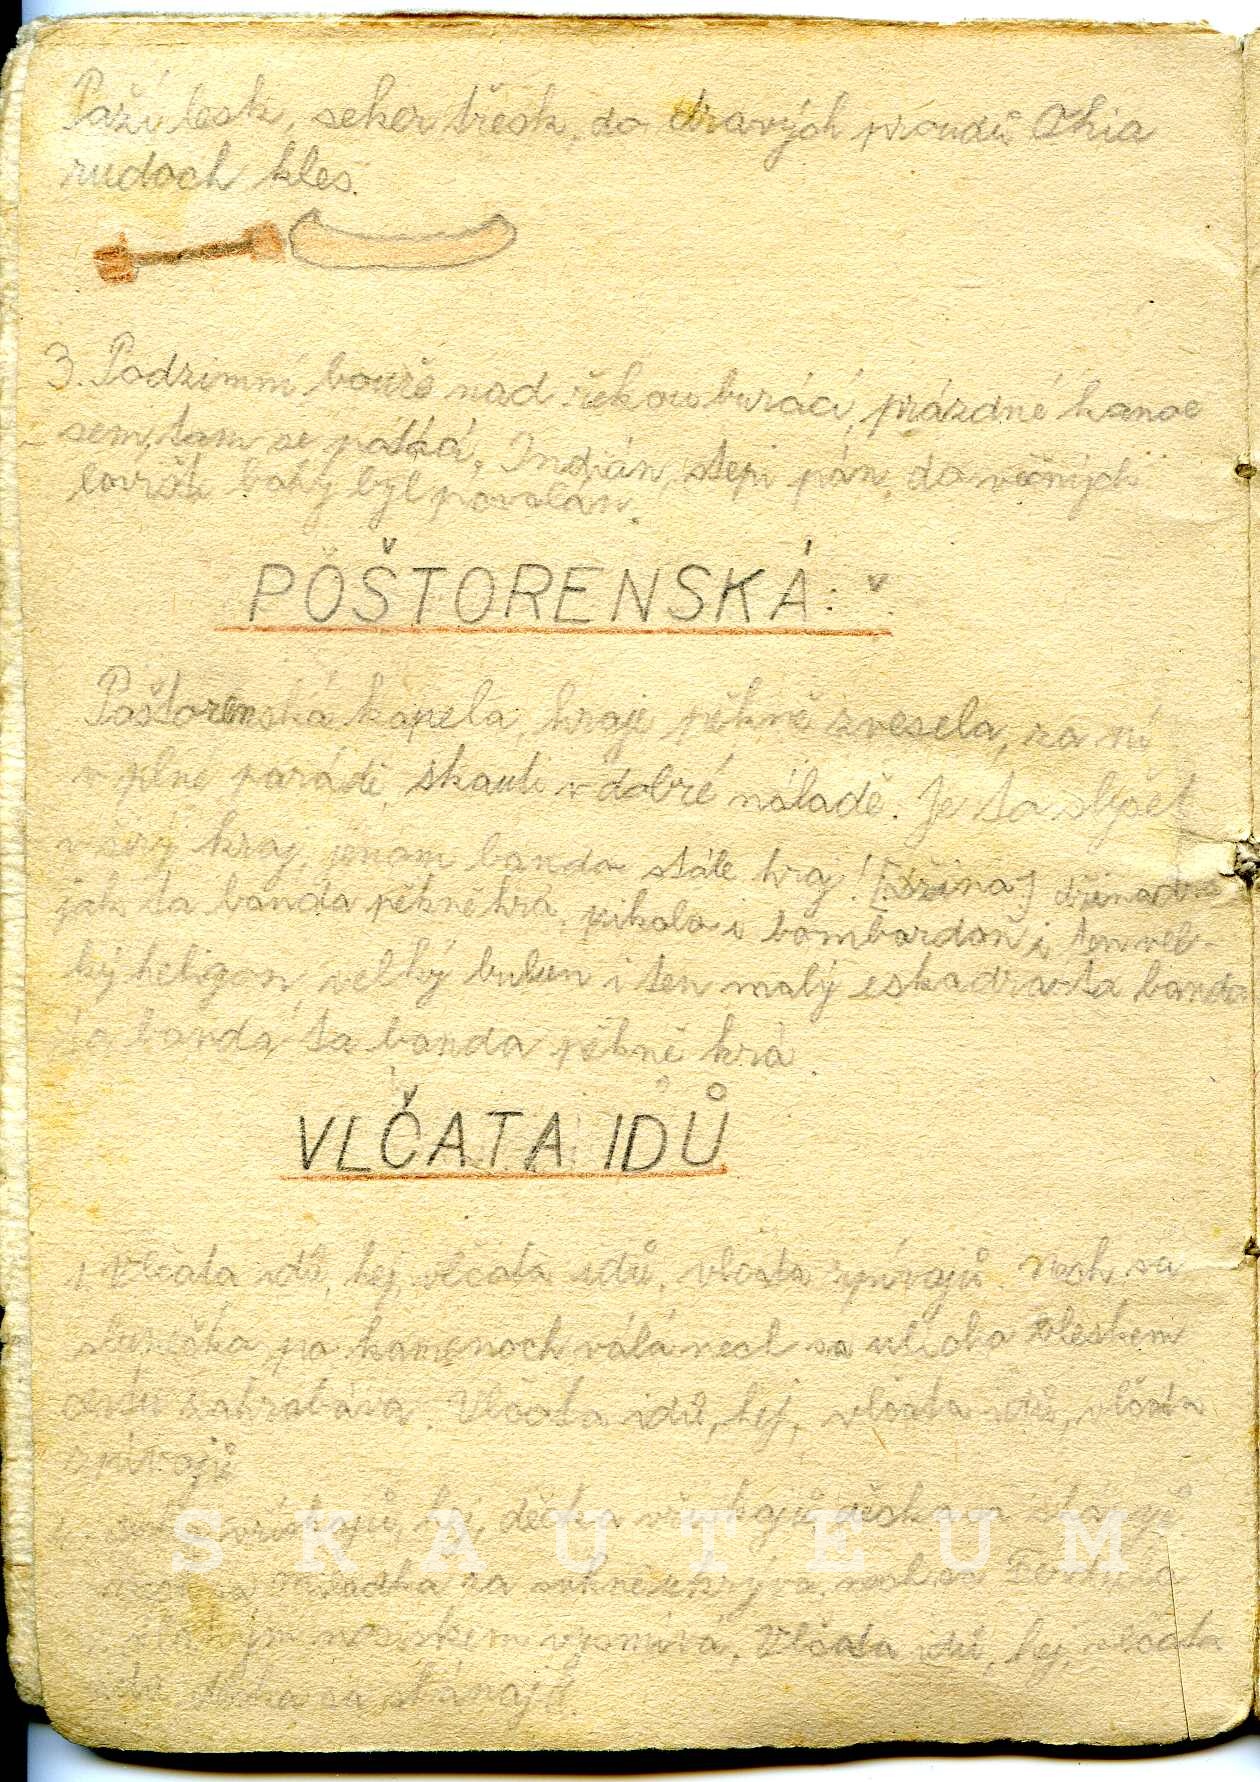 Paží lesk, seker třesk, do dravých proudů Ohia
rudoch kles.
3. Podzimní bouře nad řekou burácí, prázdné kanoe
sem, tam se potácí, Indián, stepi pán, do věčných
lovišť bohy byl povolán.
POŠTORENSKÁ:
Poštorenská kapela, hraje pěkně zvesela, za ní
v plné parádě, skauti v dobré náladě. Je to slyšet
v širý kraj, jenom banda stále hraj! [:dřina:] dřinadra
jak ta banda pěkně hrá, pikola i bombardon i ten vel-
ký heligon, velký buben i ten malý eskadra-ta banda
ta banda ta banda pěkně hrá.
VLČATA IDŮ
1. Vlčata idů, hej, vlčata idů, vlčata zpívajů. Nech sa
slunéčko po kamenoch válá nech sa vlídko bleskem
cestu zahrabáva. Vlčata idů, hej, vlčata idů, vlčata
zpívajů
vrískajů, hej, děcka vřískajů, děcka sa
sa za sukně ukrývá, nech sa
vyzmívá. Vlčata idů, hej, vlčata
idů, děcka sa
SKAUTEUM